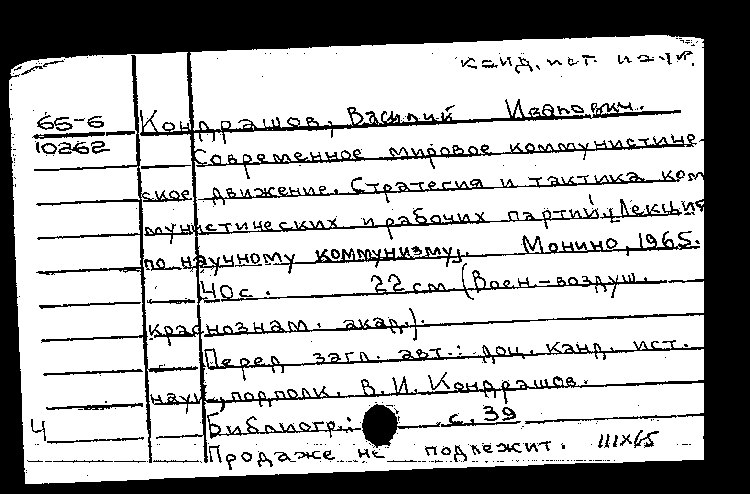 канд. ист. наук.
65-6 Кондрашов, Василий Иванович.
10262 Современное мировое коммунистиче-
ское движение. Стратегия и тактика ком
мунистических и рабочих партий. (Лекция
по научному коммунизму). Монино, 1965.
40с. 22 см (Воен-воздуш.
краснознам. акад.).
Перед загл. авт.: доц. канд. ист.
наук, подполк. В. И. Кондрашов.
Библиогр.: с. 39
Ч
Продаже не подлежит. III X 65